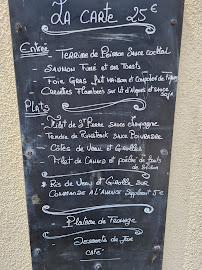 LA CARTE 25 €
Entrée
- TERRINE de Poisson SAUCE cocktail
- SAUMON Fumé et ses TOASTS
- FOIE GRAS FAIT MAISON et
- Flambées sur lit d'Algues et SAUCE
SOJA
Plats
- Filet de St PIERRE SAUCE champagne
- SAUCE
- Côtes de VEAU et GIROLLES
- Filet de CANARD et poêlée de fruits
de Saison
* RIS de VEAU et GIROLLES SUR
COMMANDE A L'AVANCE Supplément 5 €
Plateau de Fromage
Desserts du Jour
CAFÉ